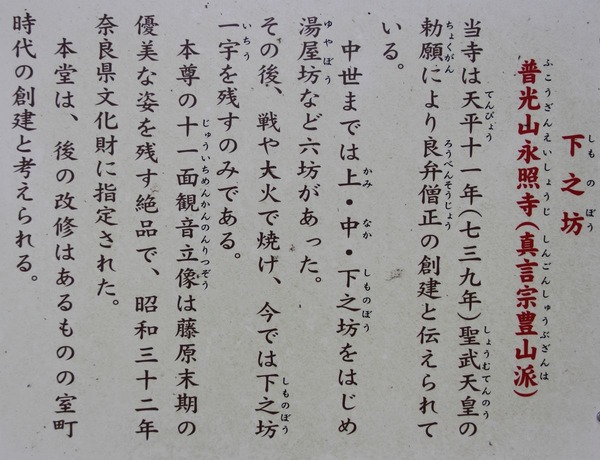 下之坊
しものぼう
普光山永照寺(真言宗豊山派)
ふこうざんえいしょうじ しんごんしゅうぶざんは
当寺は天平十一年(七三九年)聖武天皇の
てんぴょう しょうむてんのう
勅願により良弁僧正の創建と伝えられて
ちょくがん ろうべんそうじょう
いる。
中世までは上・中・下之坊をはじめ
かみ なか しものぼう
湯屋坊など六坊があった。
ゆやぼう
その後、戦や大火で焼け、今では下之坊
しものぼう
一宇を残すのみである。
いちう
本尊の十一面観音立像は藤原末期の
じゅういちめんかんのんりつぞう
優美な姿を残す絶品で、昭和三十二年
奈良県文化財に指定された。
本堂は、後の改修はあるものの室町
時代の創建と考えられる。